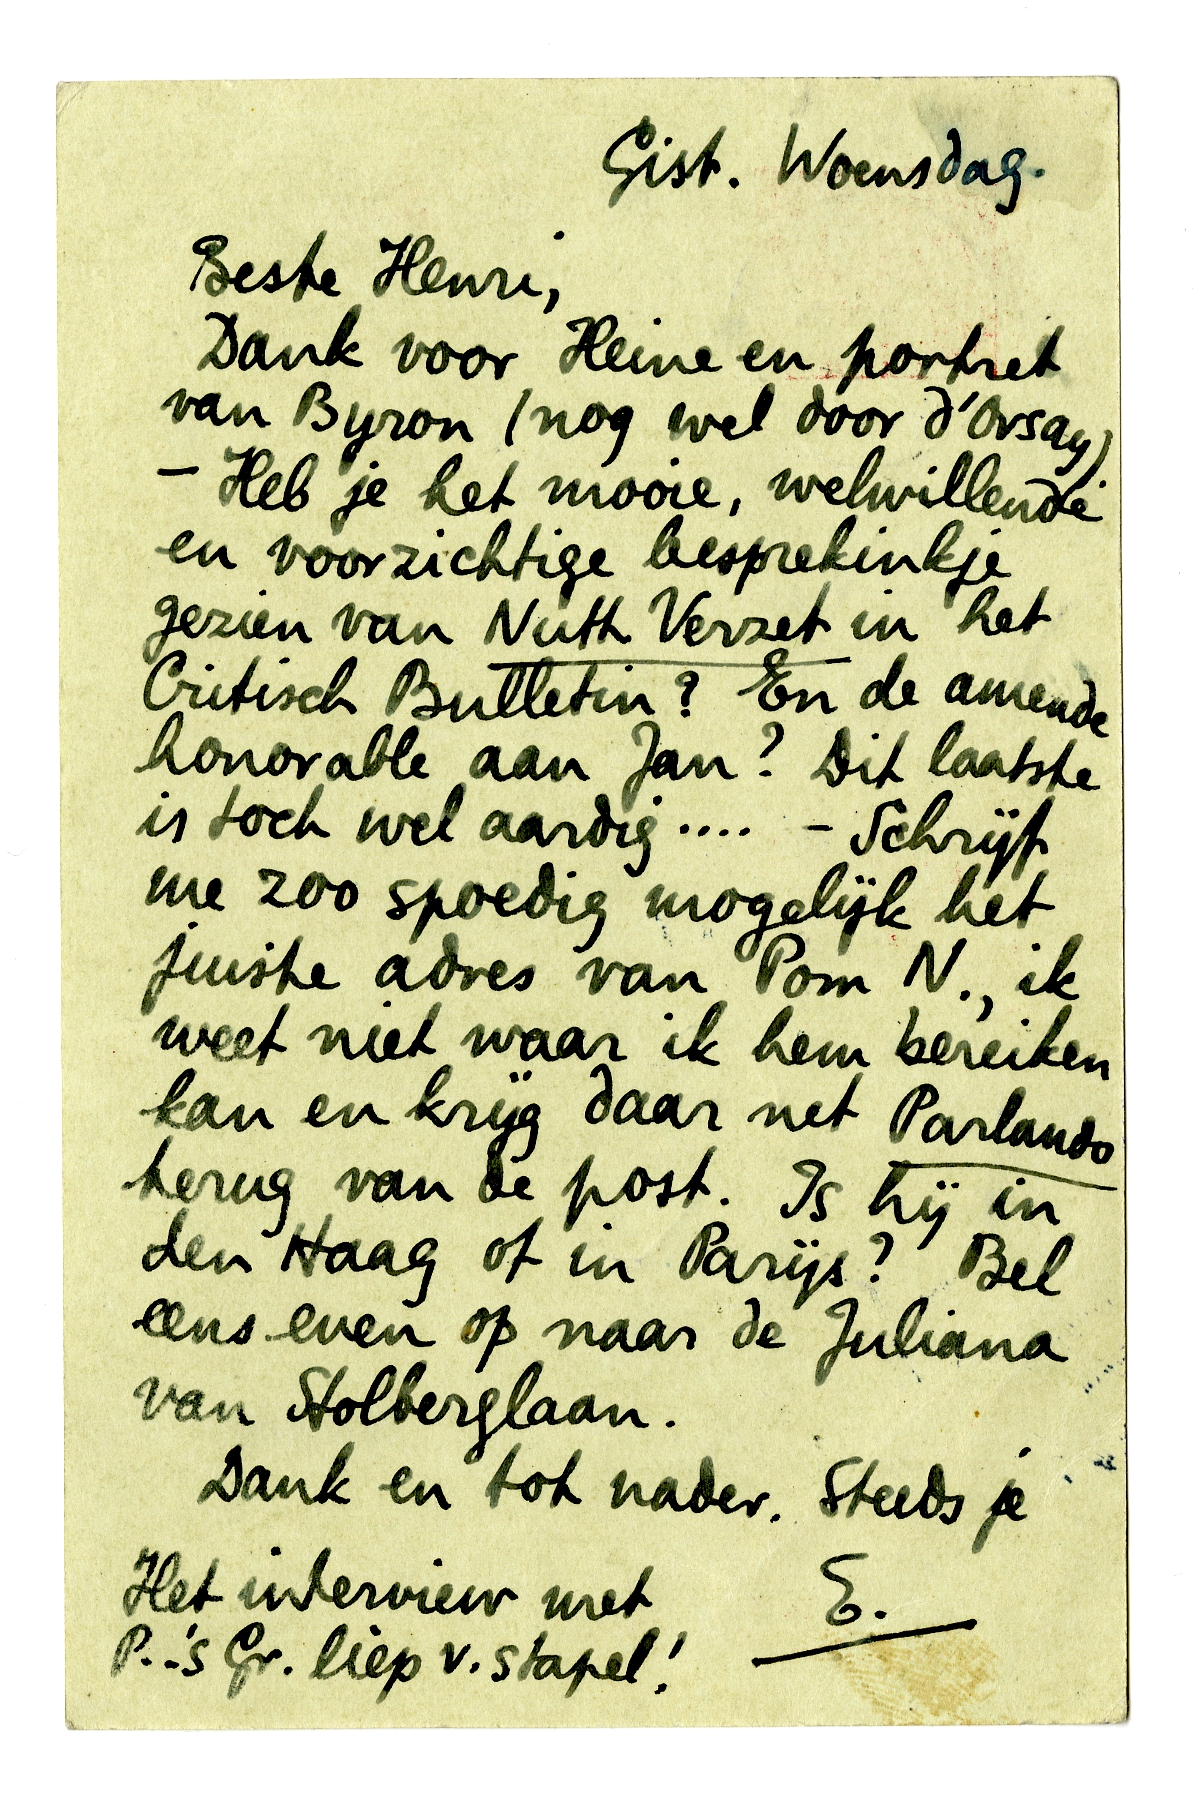 Gist. Woensdag.
Beste Henri,
Dank voor Heine en portret
van Byron (nog wel door d'Orsay)
– Heb je het mooie, welwillende
en voorzichtige besprekinkje
gezien van Nutt. Verzet in het
Critisch Bulletin? En de amende
honorable aan Jan? Dit laatste
is toch wel aardig.... – Schrijf
me zoo spoedig mogelijk het
juiste adres van Pom N., ik
weet niet waar ik hem bereiken
kan en krijg daar net Parlando
terug van de post. Is hij in
den Haag of in Parijs? Bel
eens even op naar de Juliana
van Stolberglaan.
Dank en tot nader. Steeds je
E.
Het interview met
P.-'s Gr. liep v. stapel!